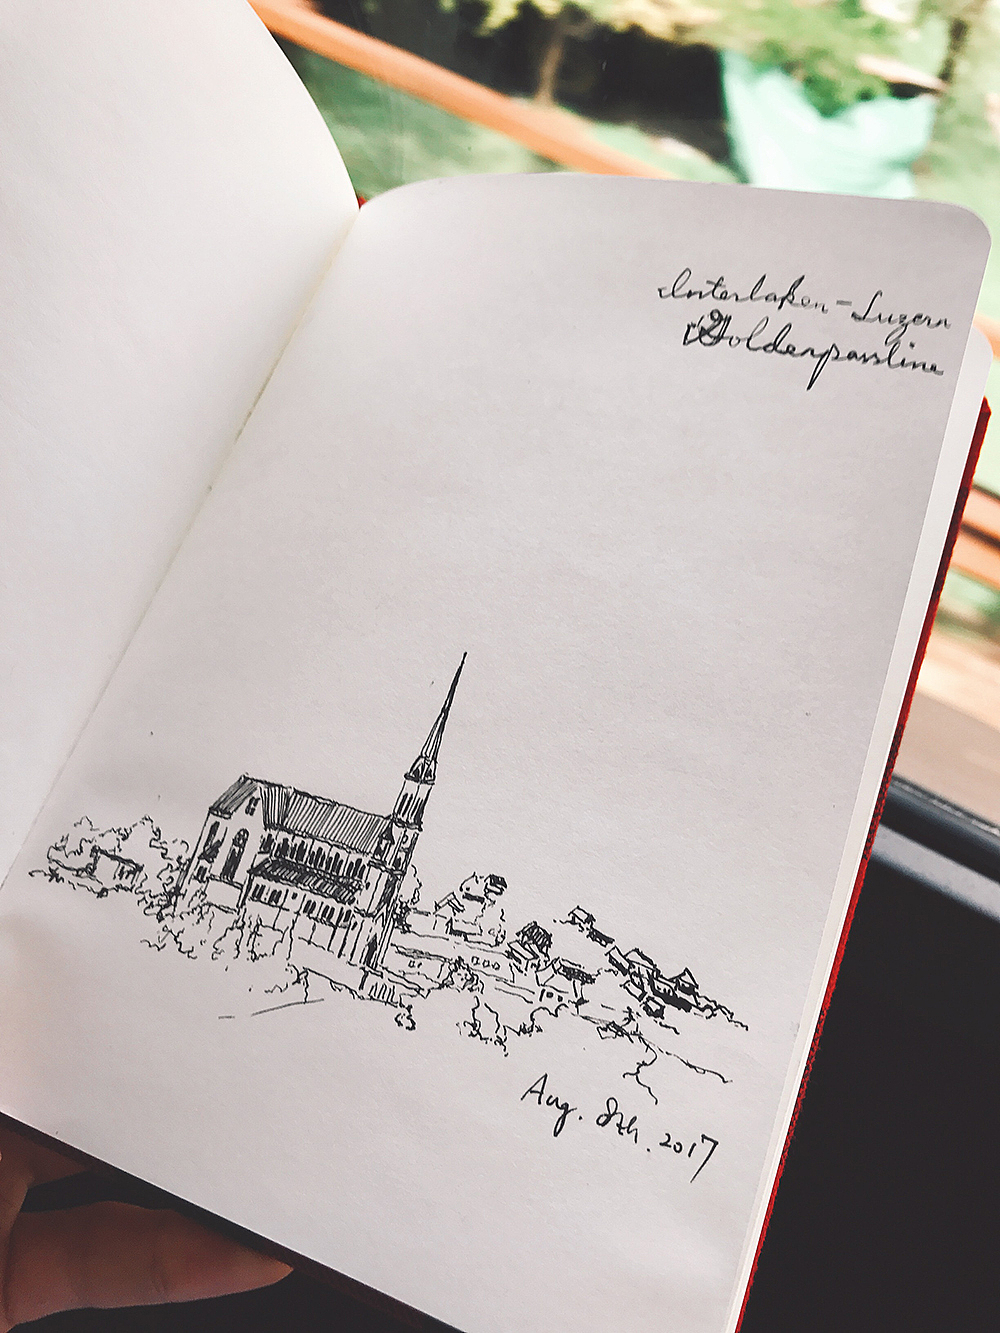 Interlaken - Luzern
Goldenpassline
Aug. 8th. 2017